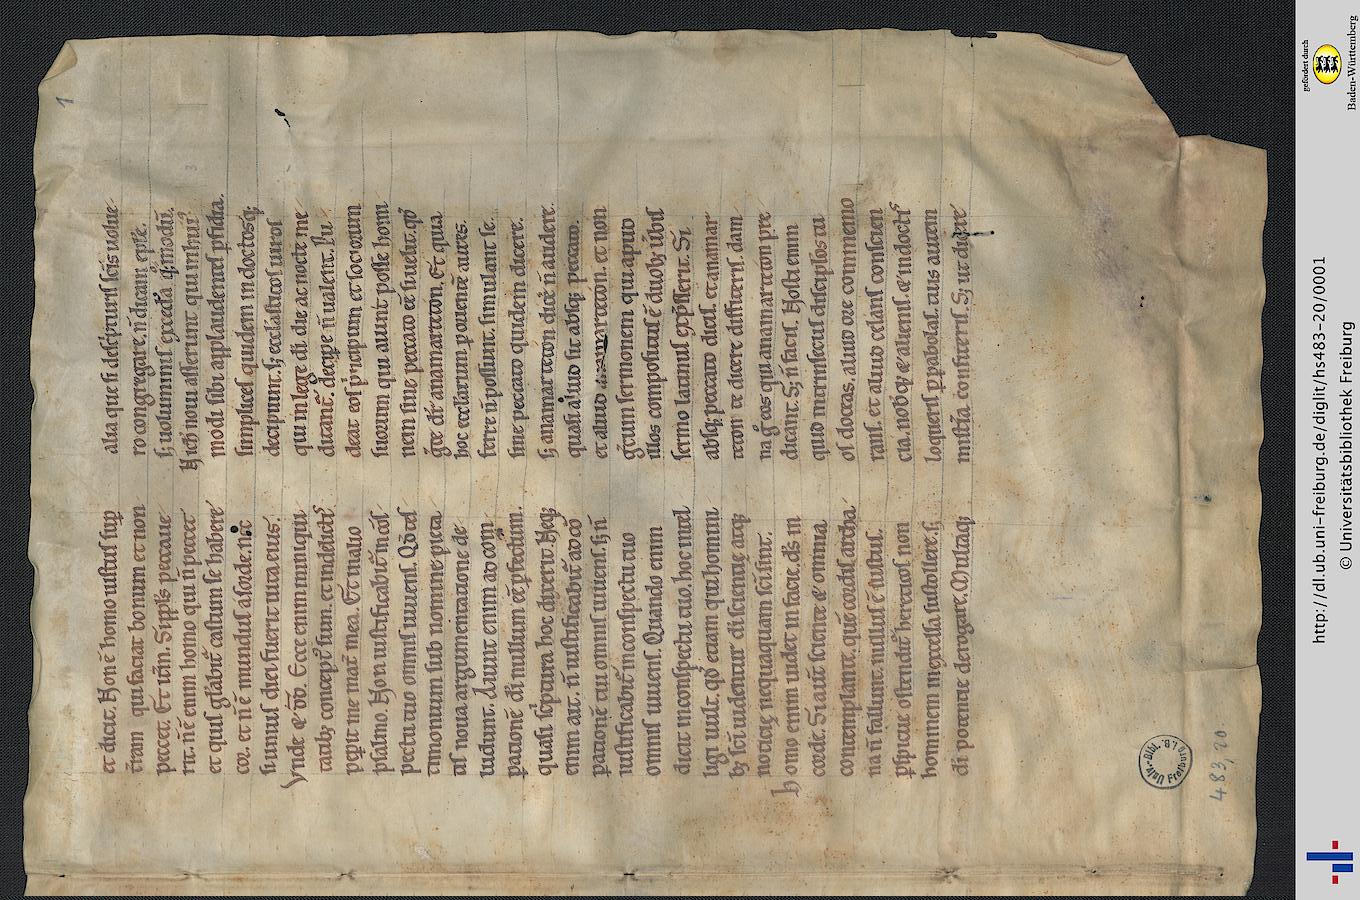 1
et dicit. Non ē homo iustus sup
tram qui faciat bonum et non
peccet. Et itm̄. Si pp̄ls peccaue
rit. n̄ ē enim homo qui n̄ peccet
et quis gl̄abit̄ castum se habere
cor. et n̄ ē mundus a sorde. nec
si unius diei fuerit uita eius.
Vnde & dd̄. Ecce enim iniqui
tatib; concept⁹ sum. et in delictis
pepit me mat̄ mea. Et in alio
psalmo. Non iustificabit̄ in cōs
pectu tuo omnis uiuens. Qd̄ tes
timonium sub nomine pieta
tis noua argumentatione de
ludunt. Aiunt enim ad com
parationē di nullum ēē pfectum.
quasi sc̄ptura hoc dixerit. Neq;
enim ait. n̄ iustificabit̄ ad cō
parationē tui omnis uiuens. s; n̄
iustificabit̄ in conspectu tuo
omnis uiuens. Quando enim
dicit in conspectu tuo. hoc intel
ligi uult. qd̄ etiam qui homini
b; sc̄i uidentur. di scientię atq;
noticię nequaquam sc̄i sint.
Homo enim uidet in facie. ds̄ in
corde. Si aūt sciente & omnia
contemplante. quē cordis archa
na n̄ fallunt. nullus ē iustus.
pspicue ostendit̄ hereticos non
hominem in excelsa sustollere. s;
di potentie derogare. Multaq;
alia que si de scripturis sc̄is uolue
ro congregare. n̄ dicam eplē.
s; uoluminis excedā q; modū.
Nichil noui asserunt qui in hui⁹
modi sibi applaudentes pfidia.
simplices quidem indoctosq;
decipiunt. s; ecclasticos uiros
qui in lege di die ac nocte me
ditant̄. decipe n̄ ualent. Pu
deat eos principum et sociorum
suorum qui aiunt posse homi
nem sine peccato ēē si uelit. qd̄
grę dr̄ anamartiton. Et quia
hoc ecclarum p orientē aures
ferre n̄ possunt. simulant se
sine peccato quidem dicere.
s; anamartiton dicē n̄ audere.
quasi aliud sit absq; peccato.
et aliud anamartiton. et non
grecum sermonem qui apud
illos compositus ē duob; ūbis
sermo latinus exp̄sserit. Si
absq; peccato dicis. et anamar
titon te dicere diffiteris. dam
na g eos qui anamartiton pre
dicant. S; n̄ facis. Nosti enim
quid intrinsecus discipulos tu
os doceas. aliud ore commemo
rans. et aliud celans conscien
cia. nobq; & alienis. & indoctis
loqueris p parabolas. tuis autem
misteria confiteris.
483, 20
Univ.-Bibl. Freiburg i. B.
gefördert durch
Baden-Württemberg
http://dl.ub.uni-freiburg.de/diglit/hs483-20/0001
© Universitätsbibliothek Freiburg